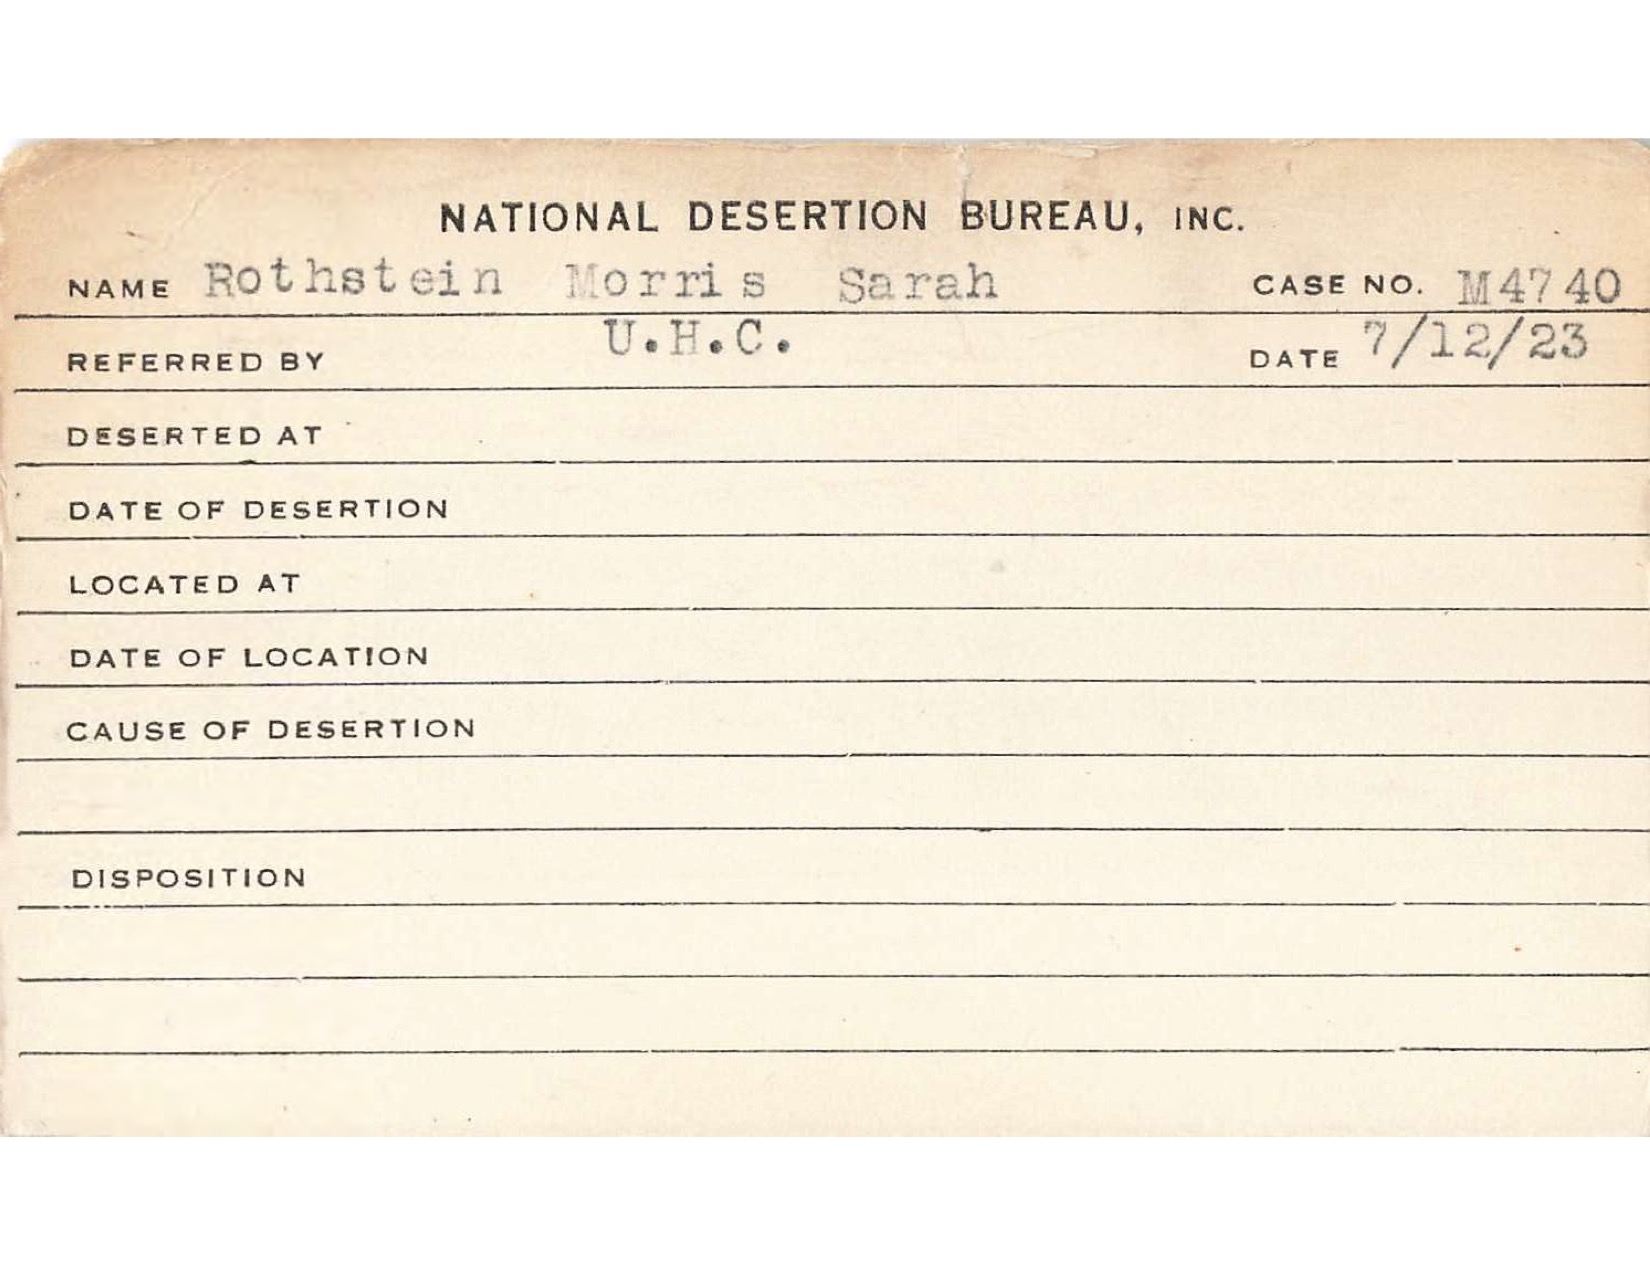 NATIONAL DESERTION BUREAU, INC.
NAME Rothstein Morris Sarah CASE NO. M4740
REFERRED BY U.H.C. DATE 7/12/23
DESERTED AT
DATE OF DESERTION
LOCATED AT
DATE OF LOCATION
CAUSE OF DESERTION
DISPOSITION